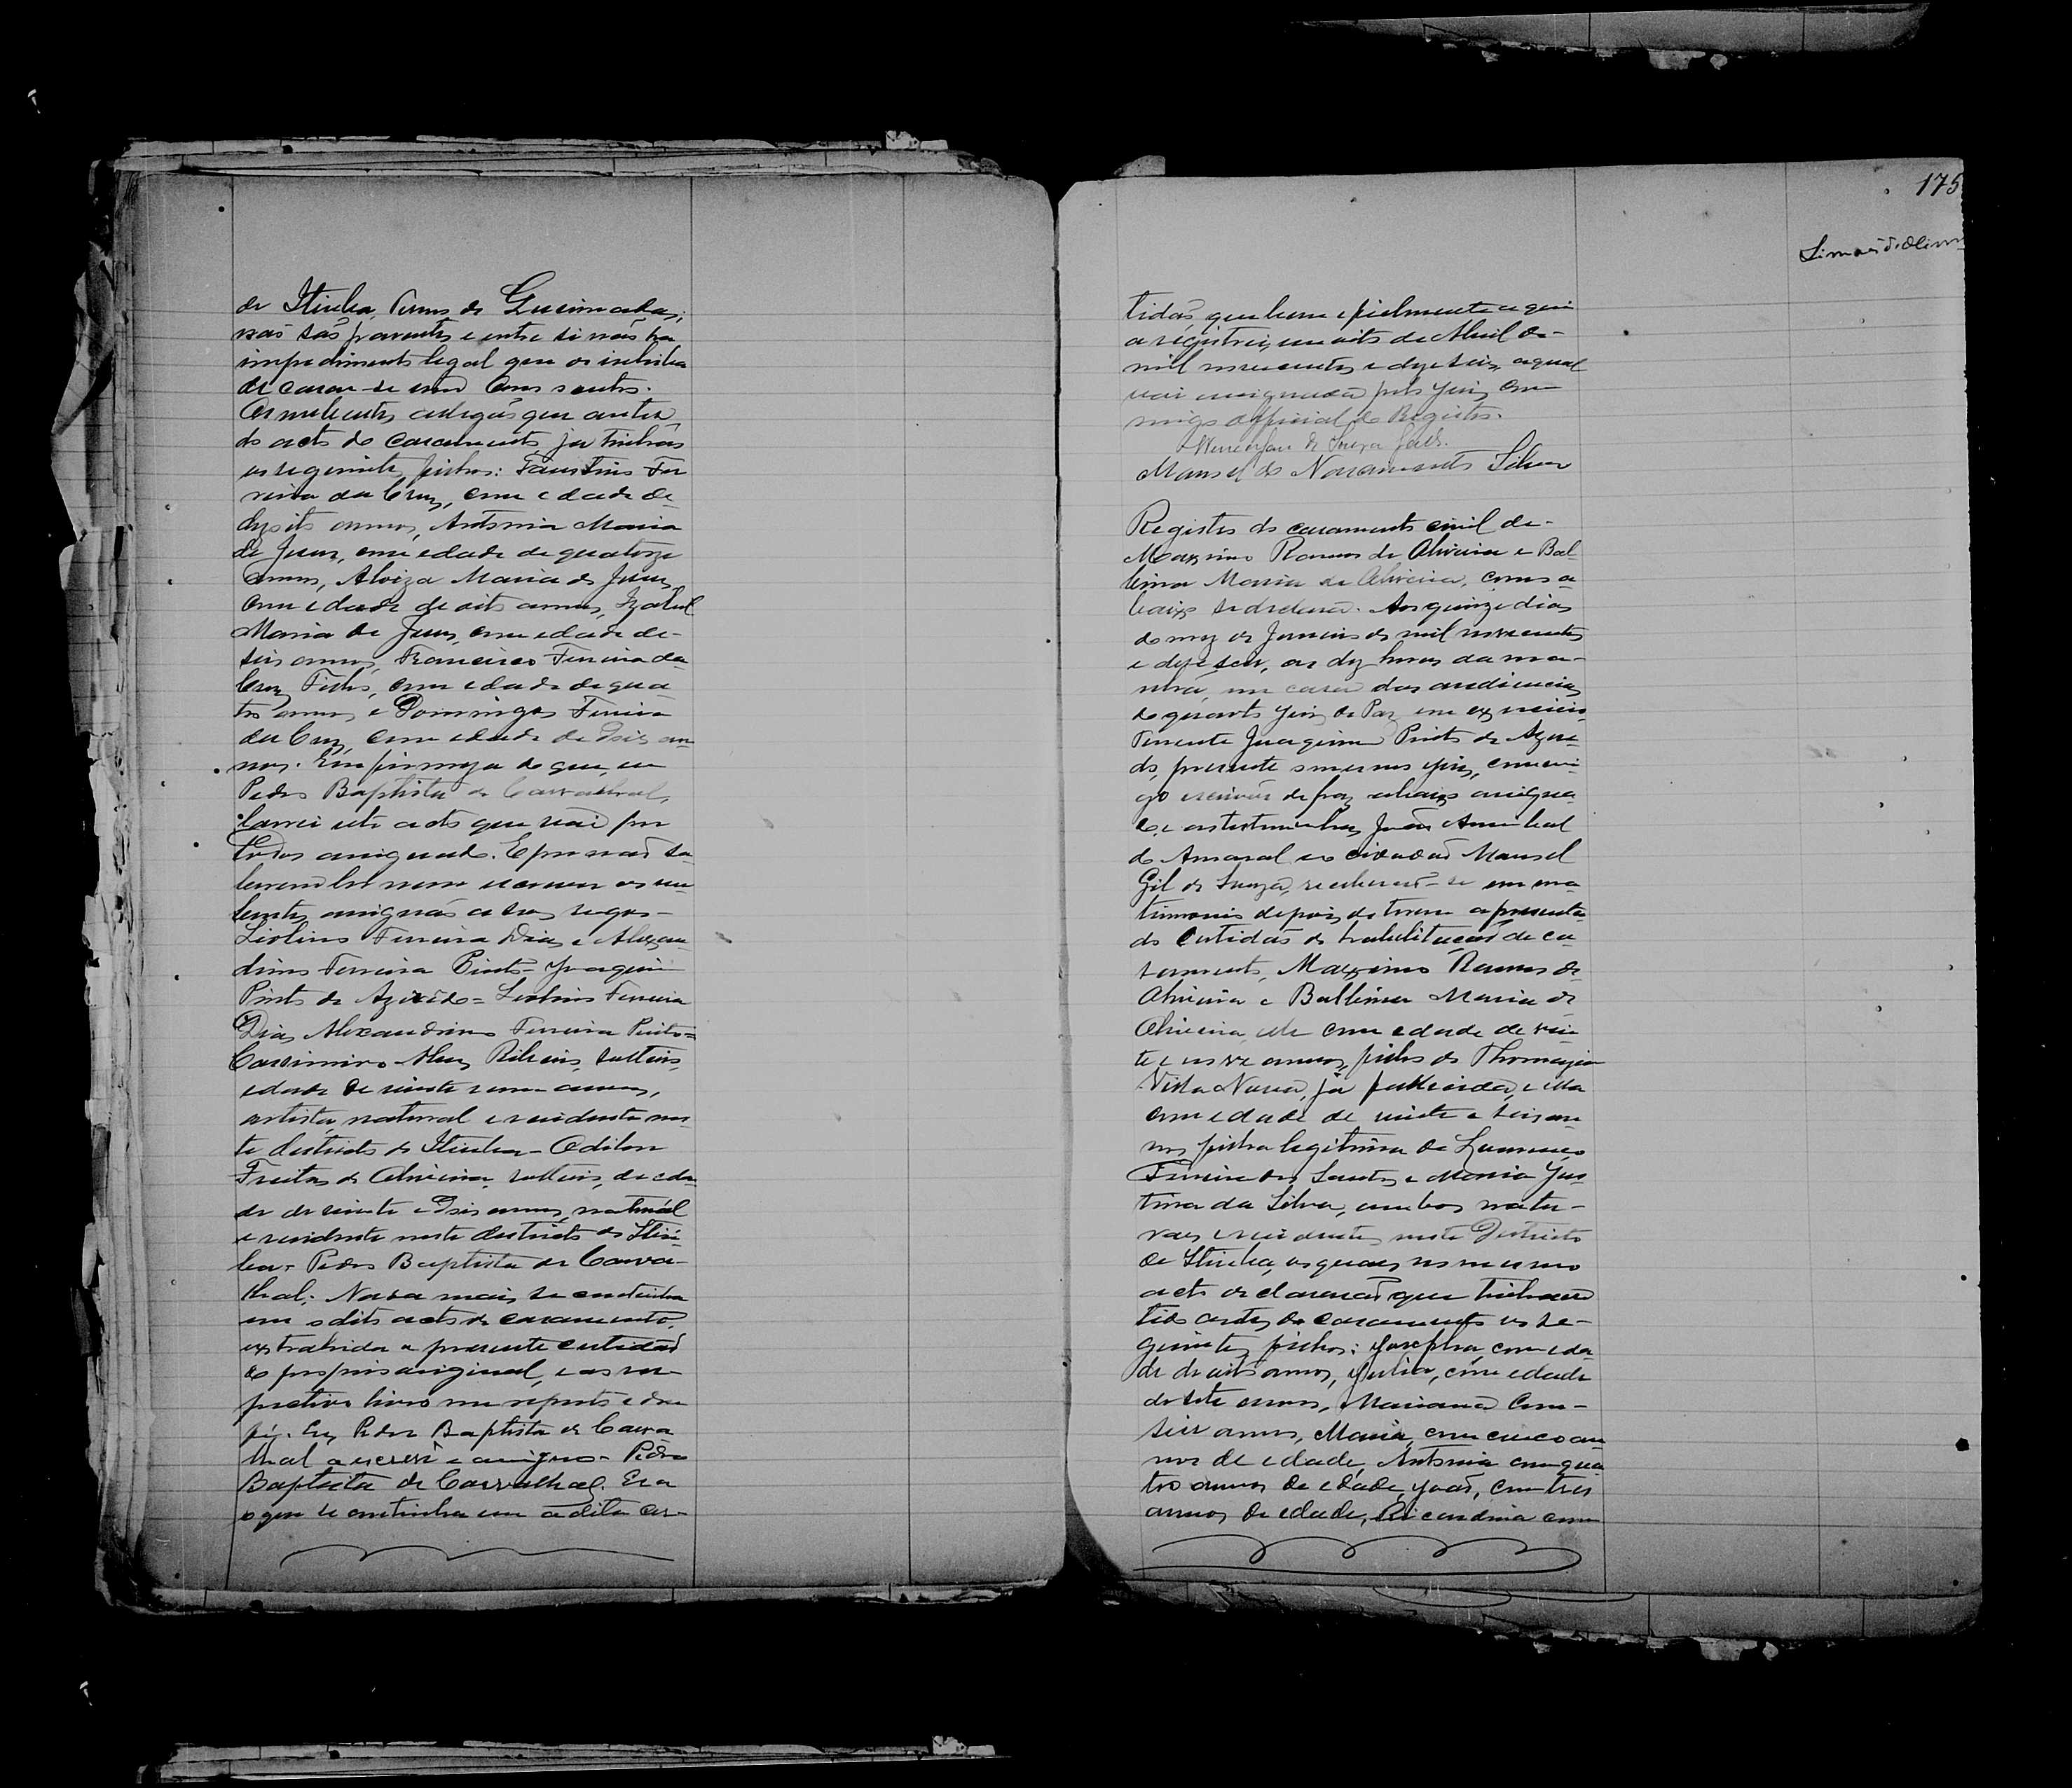 de Itiuba, Termo de Queimadas;
não são parentes e entre si não ha
impedimento legal que os inhiba
de casar-se um com o outro.
Os nubentes antes
do acto do casamento já tinhão
os seguintes filhos: Faustino Fer
reira da Cruz, com edade de
dezoito annos, Antonia Maria
de Jesus, com edade de quatorze
annos, Maria de Jesus,
com edade de oito annos, Izabel
Maria de Jesus, com edade de-
seis annos, Francisco Ferreira da
Cruz Filho, com edade de qua
tro annos e Domingos Ferreira
da Cruz, com edade de dois an
nos. Em firmeza do que, eu
Pedro Baptista de Carvalhal,
lavrei este acto que vai por
todos assignado. E por não sa
berem ler nem escrever os nu
bentes, assignão a seus rogos-
Liolino Ferreira Dias e Alexan
drino Ferreira Pinto = Joaquim
Pinto de Azevêdo = Liolino Ferreira
Dias, Alexandrino Ferreira Pinto =
Cassimiro Alves Ribeiro, solteiro,
edade de vinte e um annos,
artista, natural e residente nes
te districto de Itiuba - Odilon
Freitas de Oliveira, solteiro, de eda
de de vinte e dois annos, natural
e residente neste districto de Itiú
ba = Pedro Baptista de Carva-
lhal; Nada mais se continha
em o dito acto de casamento,
extrahida a presente certidão
do proprio original, e ao res-
pectivo livro me reporto e dou
fé. Eu, Pedro Baptista de Carva
lhal a escrevi e assigno - Pedro
Baptista de Carvalhal. Era
o que se continha em a dita cer-
175
Simão d. Olivei
tidão que bem e fielmente aqui
a registrei, em oito de Abril de-
mil novecentos e dezeseis, a qual
vai assignada pelo Juiz com
migo official do Registro.
de Souza
Manoel do Nascimento Silva
Registro do casamento civil de-
Maximo Ramos de Oliveira e Bal
bina Maria de Oliveira, como a
baixo se declara. Aos quinze dias
do mez de Janeiro de mil novecentos
e dezeseis, as dez horas da ma-
nhã, em casa das audiencias
do quarto Juiz de Paz em exercicio
Tenente Joaquim Pinto de Azeve
do, presente o mesmo Juiz, commi
go escrivão de paz abaixo assigna
do, e as testemunhas João Annibal
do Amaral e o cidadão Manoel
Gil de Souza, receberão-se em ma
trimonio depois de terem apresenta
do certidão de habilitação de ca
samento, Maximo Ramos de
Oliveira e Balbina Maria de
Oliveira, elle com edade de vin
te e nove annos, filho de Thomazia
Villa Nova, já fallecida, e ella
com edade de vinte e seis an
nos, filha legitima de Lourenço
Ferreira dos Santos e Maria Jus
tina da Silva, ambos natu-
raes e residentes neste Districto
de Itiuba, os quaes no mesmo
acto declararão que tinham
tido antes do casamento os se-
guintes filhos: Josepha, com eda
de de oito annos, Julia, com edade
de sete annos, Marianna com-
seis annos, Maria, com cinco an
nos de edade, Antonia com qua
tro annos de edade, João, com tres
annos de edade, com